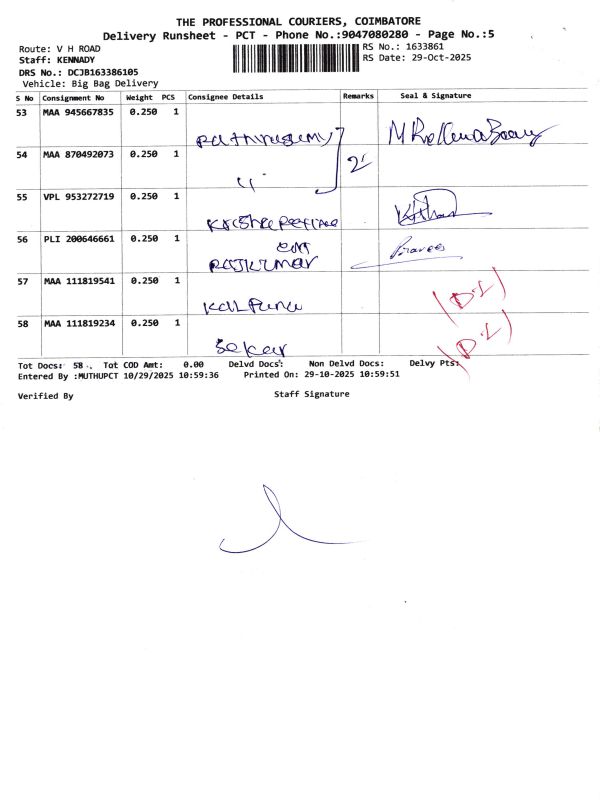 THE PROFESSIONAL COURIERS, COIMBATORE
Delivery Runsheet - PCT - Phone No.:9047080280 - Page No.:5
Route: V H ROAD
RS No.: 1633861
Staff: KENNADY
RS Date: 29-Oct-2025
DRS No.: DCJB163386105
Vehicle: Big Bag Delivery
S No Consignment No Weight PCS Consignee Details Remarks Seal & Signature
53 MAA 945667835 0.250 1
54 MAA 870492073 0.250 1
55 VPL 953272719 0.250 1
56 PLI 200646661 0.250 1
Praveen
Rajkumar
57 MAA 111819541 0.250 1
Kalpana
(D.L)
58 MAA 111819234 0.250 1
Sekar
(D.L)
Tot Docs: 58 Tot COD Amt: 0.00 Delvd Docs: Non Delvd Docs: Delvy Pts:
Entered By :MUTHUPCT 10/29/2025 10:59:36 Printed On: 29-10-2025 10:59:51
Verified By Staff Signature